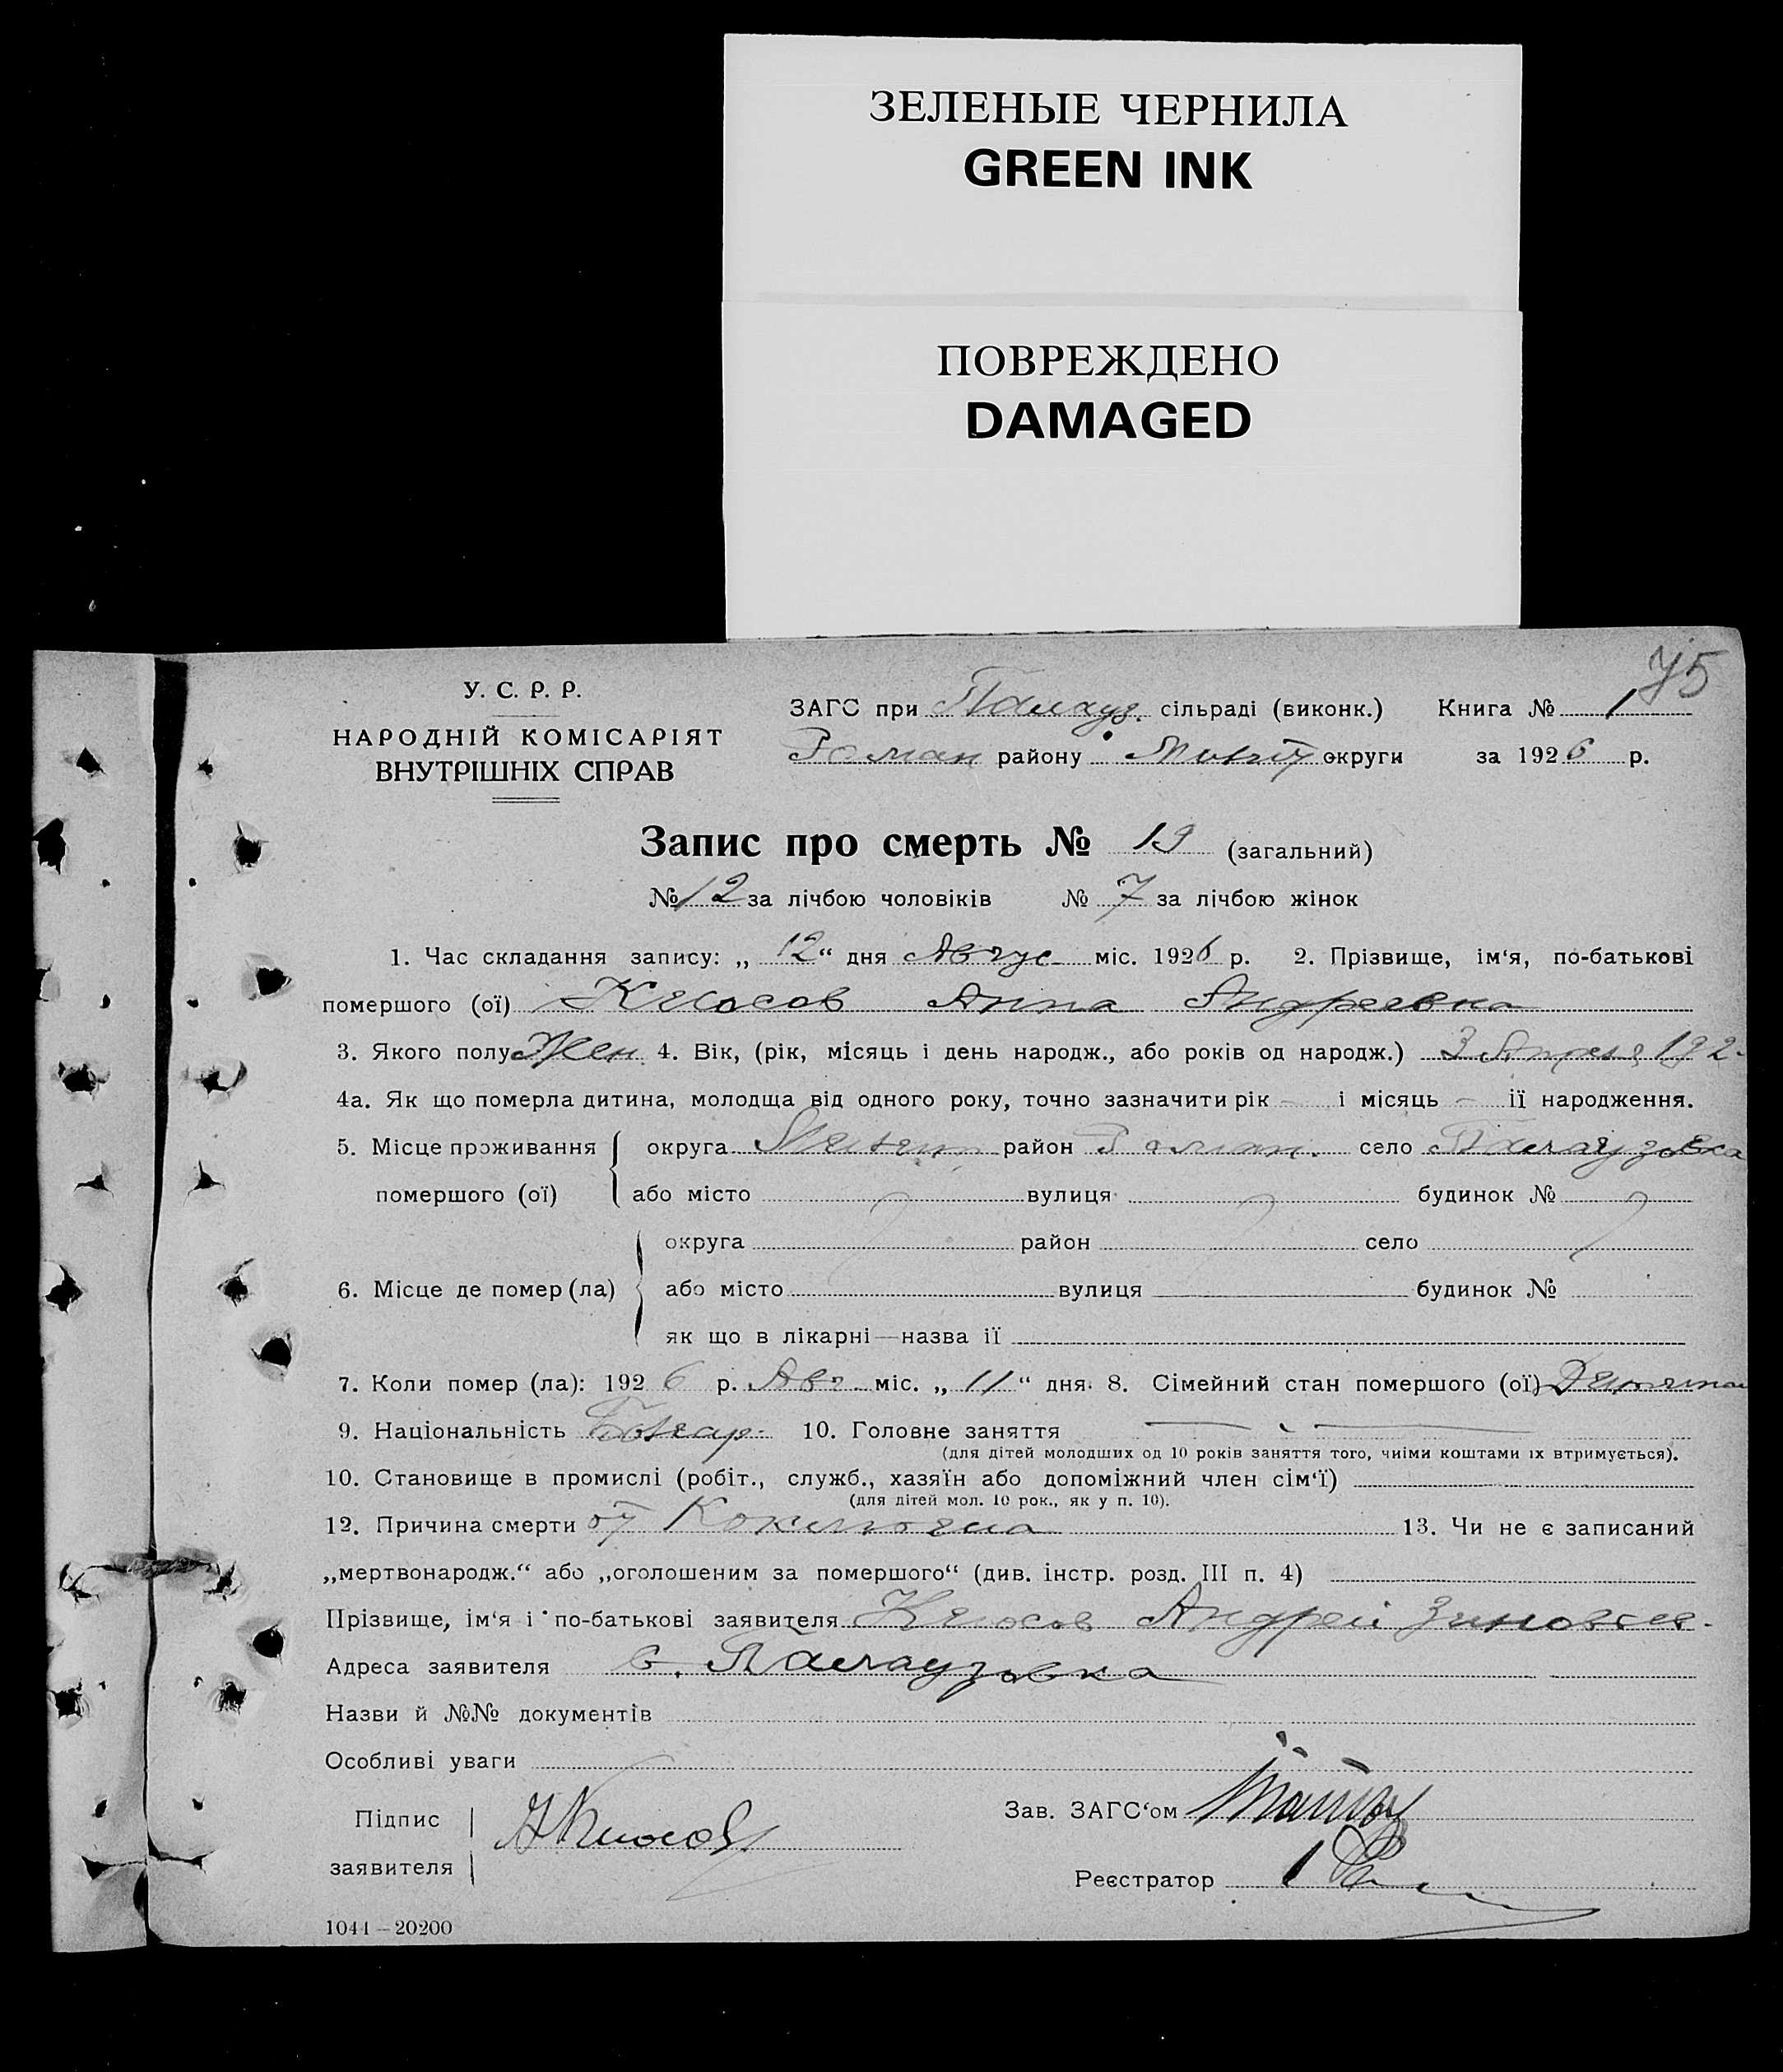 ЗЕЛЕНЫЕ ЧЕРНИЛА
GREEN INK
ПОВРЕЖДЕНО
DAMAGED
75
У. С. Р. Р.
НАРОДНІЙ КОМІСАРІЯТ
ВНУТРІШНІХ СПРАВ
ЗАГС при Палауз. сільраді (виконк.) Книга № 1
Роман району округи за 1926 р.
Запис про смерть № 19 (загальний)
№ 12 за лічбою чоловіків № 7 за лічбою жінок
1. Час складання запису: „ 12 “ дня Авгус міс. 1926 р. 2. Прізвище, ім‘я, по-батькові
помершого (ої) Клосов Анна Андреевна
3. Якого полу Жен 4. Вік, (рік, місяць і день народж., або років од народж.) 3 Апреля 192-
4а. Як що померла дитина, молодща від одного року, точно зазначити рік – і місяць – її народження.
5. Місце проживання округа район Роман. село Палаузовка
помершого (ої) або місто вулиця будинок №
округа район село
6. Місце де помер (ла) або місто вулиця будинок №
як що в лікарні—назва її
7. Коли помер (ла): 1926 р. Авг міс. „ 11 “ дня. 8. Сімейний стан помершого (ої)
9. Національність Болгар. 10. Головне заняття
(для дітей молодших од 10 років заняття того, чиїми коштами їх втримується).
10. Становище в промислі (робіт., служб., хазяїн або допоміжний член сім‘ї)
(для дітей мол. 10 рок., як у п. 10).
12. Причина смерти от Коклюша 13. Чи не є записаний
„мертвонародж.“ або „оголошеним за помершого“ (див. інстр. розд. III п. 4)
Прізвище, ім‘я і по-батькові заявителя Клосов Андрей Зиновьев.
Адреса заявителя с. Палаузовка
Назви й №№ документів
Особливі уваги
Підпис
заявителя А Клосов
Зав. ЗАГС‘ом
Реєстратор
1041—20200